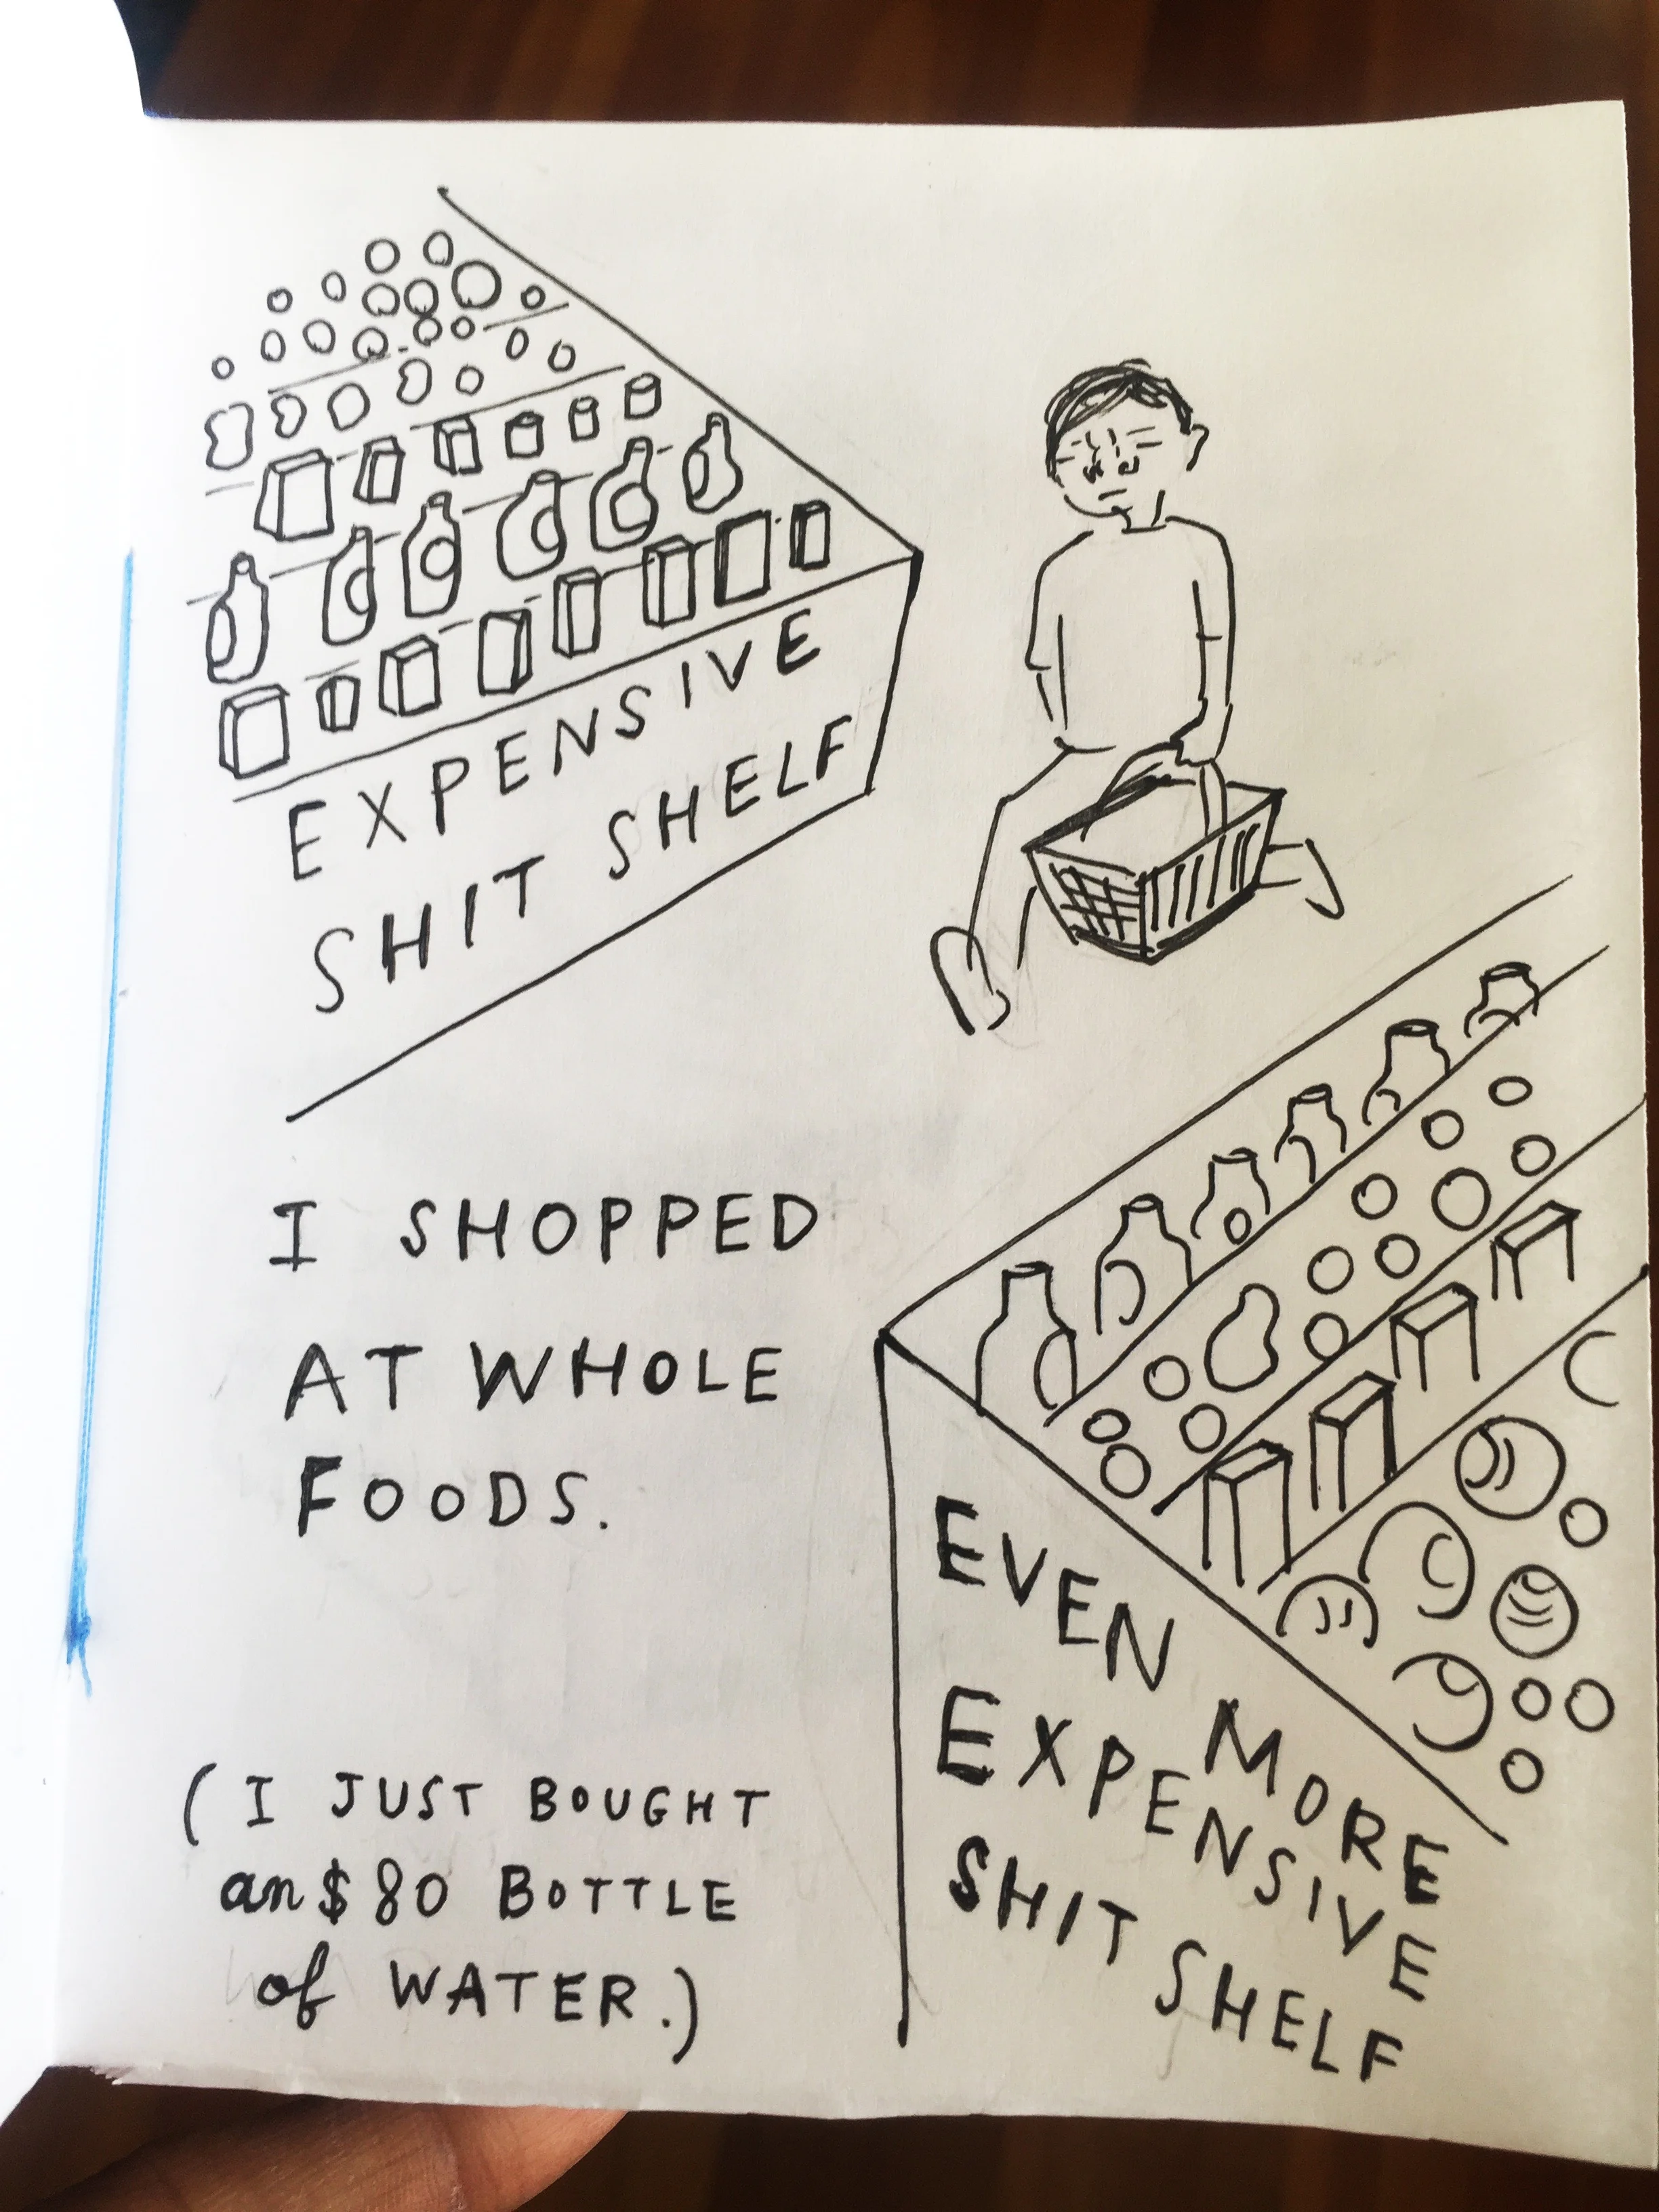 EXPENSIVE
SHIT SHELF
I SHOPPED
AT WHOLE
FOODS.
(I JUST BOUGHT
an $80 BOTTLE
of WATER.)
EVEN MORE
EXPENSIVE
SHIT SHELF